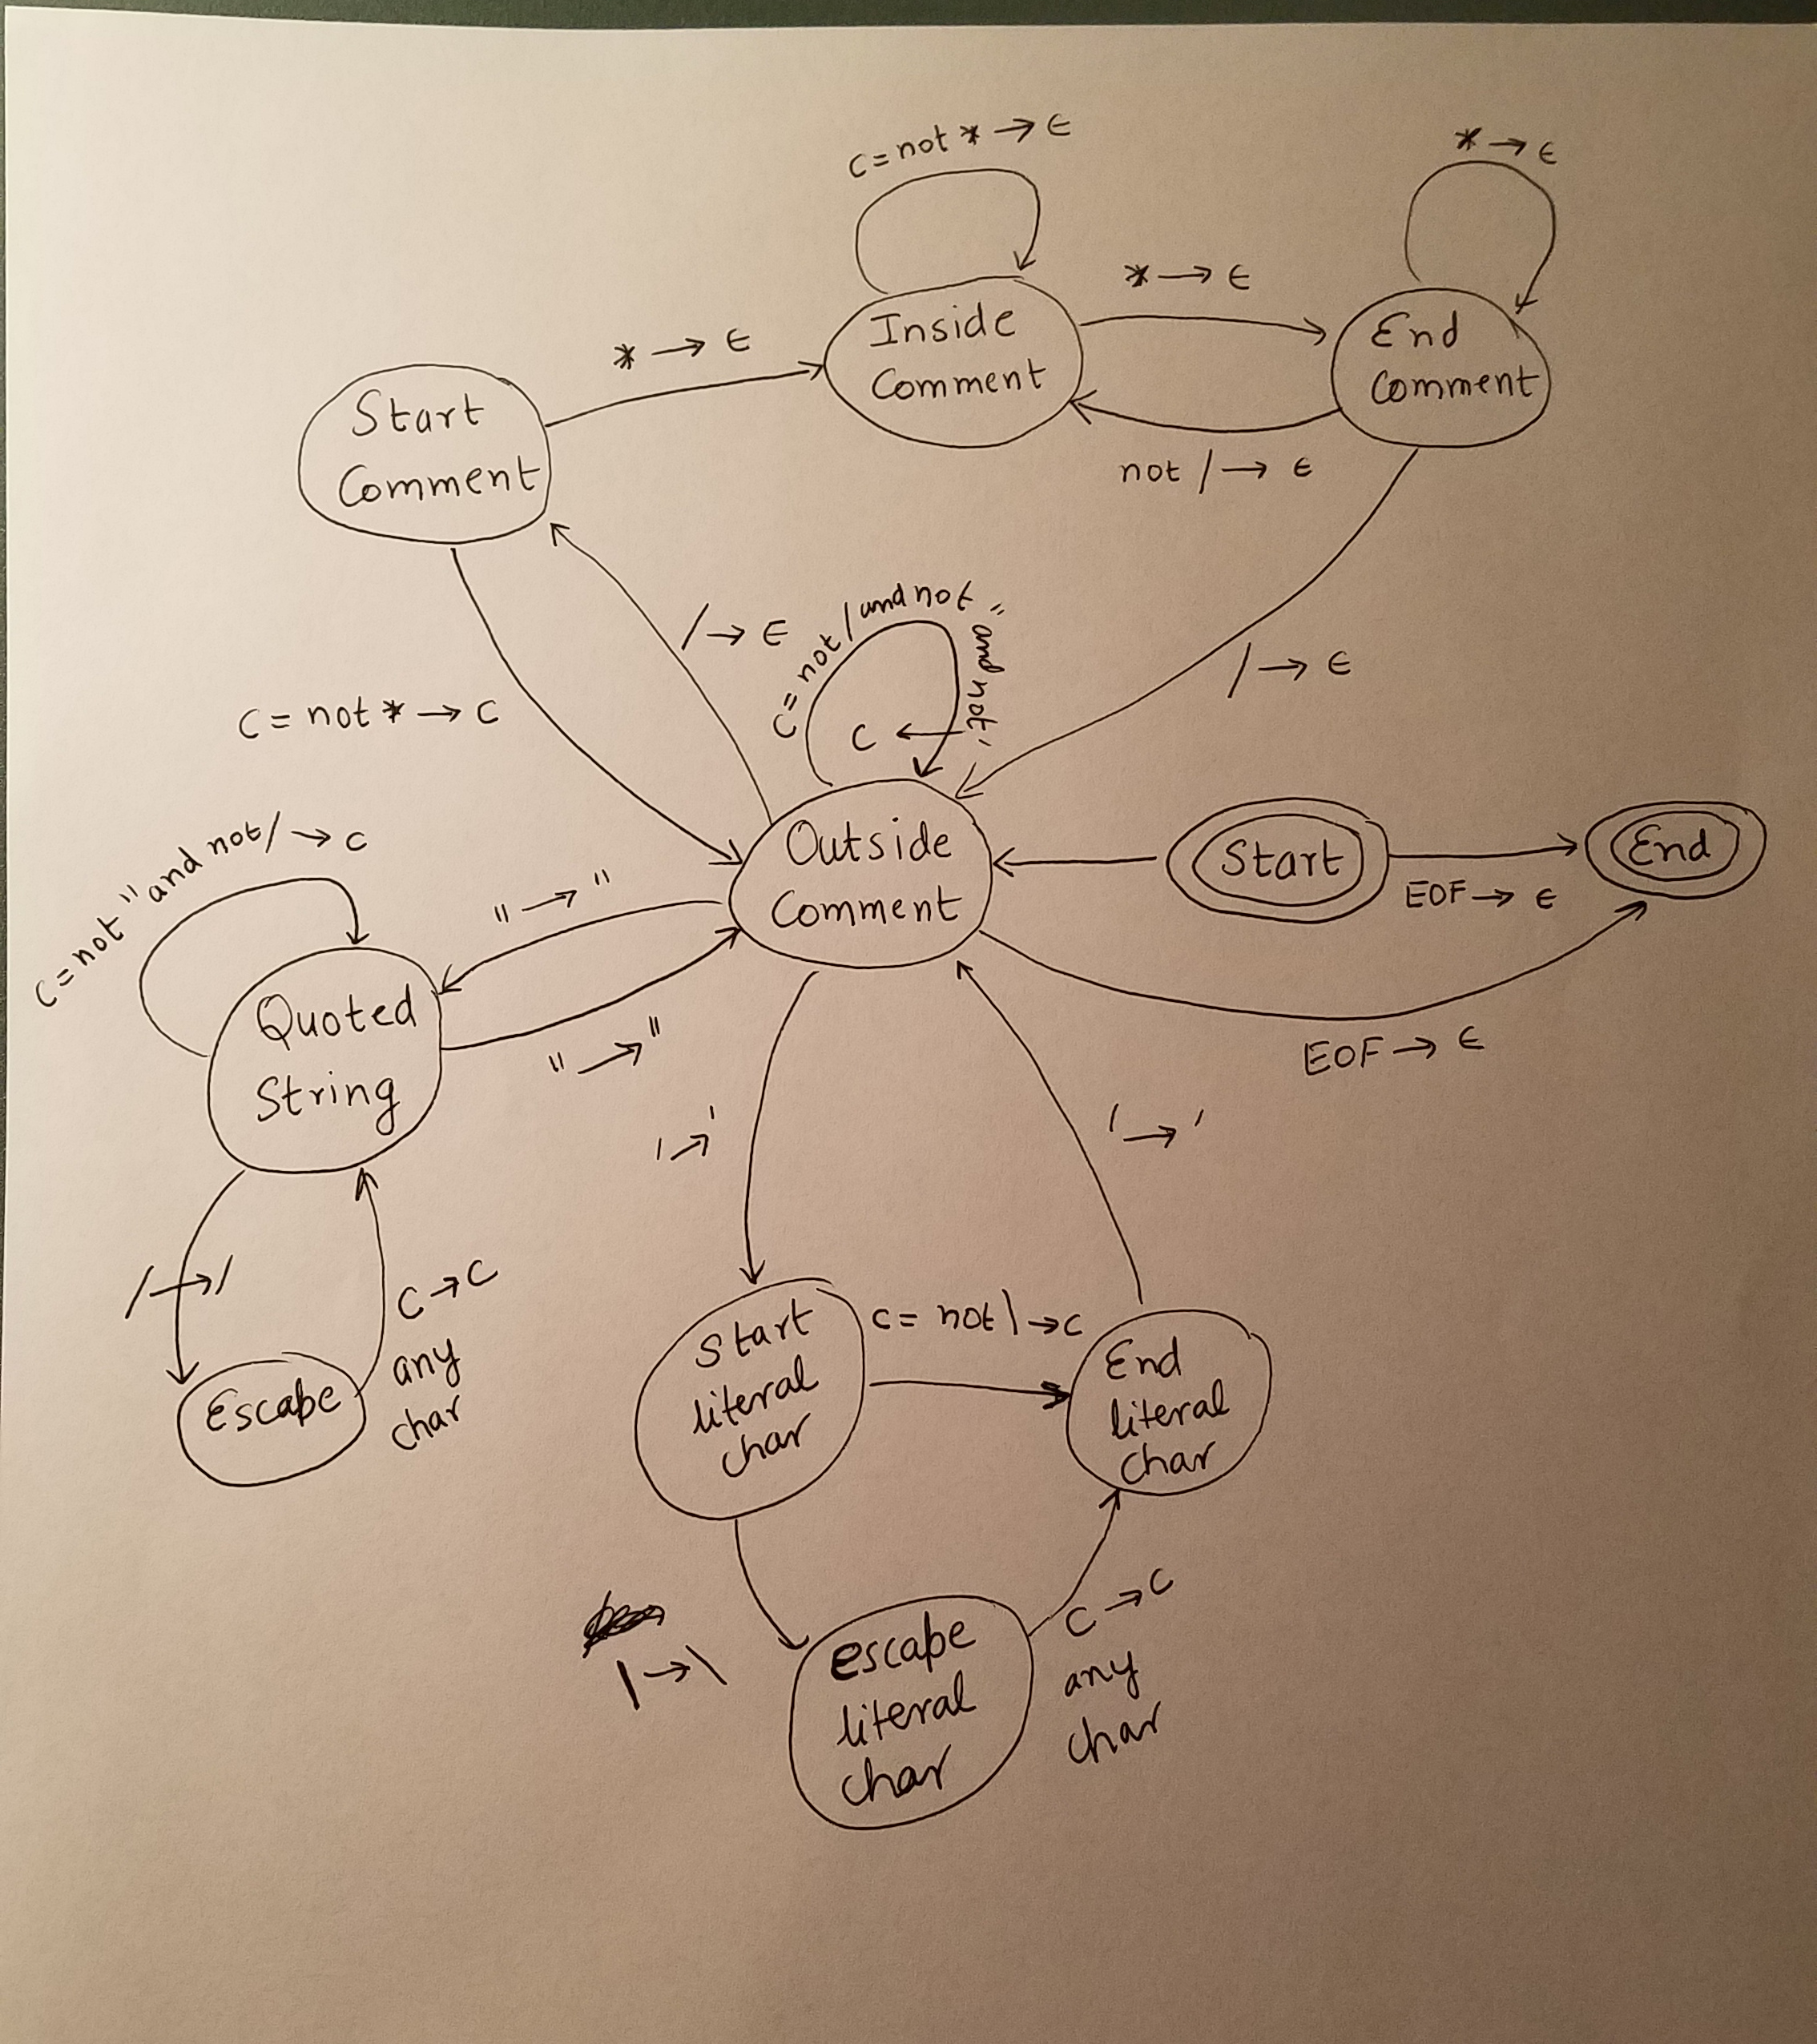 C = not * → ϵ
* → ϵ
* → ϵ
Inside
Comment
End
Comment
* → ϵ
Start
Comment
not / → ϵ
/ → ϵ
C = not / and not " and not '
→ C
/ → ϵ
C = not * → C
Outside
Comment
Start
EOF → ϵ
End
C = not " and not / → C
" → "
Quoted
String
" → "
EOF → ϵ
' → '
' → '
/ → /
C → C
any
char
Escape
Start
literal
char
C = not \ → C
End
literal
char
\ → \
escape
literal
char
C → C
any
char